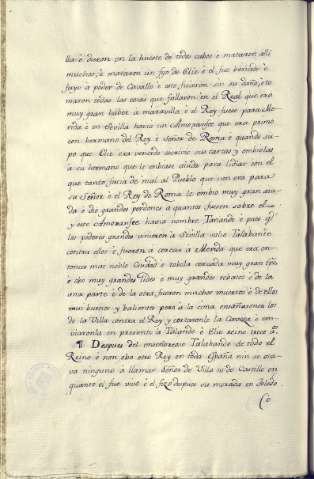 lla è dieron en la hueste de todos cabos è mataron alli
muchos, è mataron un fijo de Elie è el fue vencido è
fuyo à poder de Cavallo è este, ficaron en su daño, è to
maron todas las cosas que fallaron en el Real que era
muy gran haber à maravilla è el Rey fuese para Me
rida è en Sevilla havia un Almojarife que era primo
con hermano del Rey è Señor de Roma è quando su
po que Elie era vencido escrivio sus cartas y embiolas
à su hermano que le embiase aiuda para lidiar con el
que tanto facia de mal al Pueblo que non era para
ser Señor è el Rey de Roma le embio muy gran aiu
da è dio grandes perdones à quantos fuesen sobre el
y este Almojarife havia nombre Talande è pues que
los poderes grandes vinieron à Sevilla salio Talabande
contra ellos è fueron à cercar à Merida que era en
tonces mas noble Ciudad è tobola cercada muy gran
è ovo muy grandes lides è muy grandes rebatos è de la
una parte è de la otra, fueron muchos muertos è de ellos
muy buenos y valientes pero à la cima ensañaronse los
de la Villa contra el Rey y cortaronle la Caveza è em
viaronla en presente à Talande è Elie reino trece
¶ Despues del enseñorease Talabande de todo el
Reino è non era otro Rey en toda España nin se osa
va ninguno à llamar Señor de Villa ni de Castillo en
quanto el fue vivo è el fizo despues su morada en Toledo